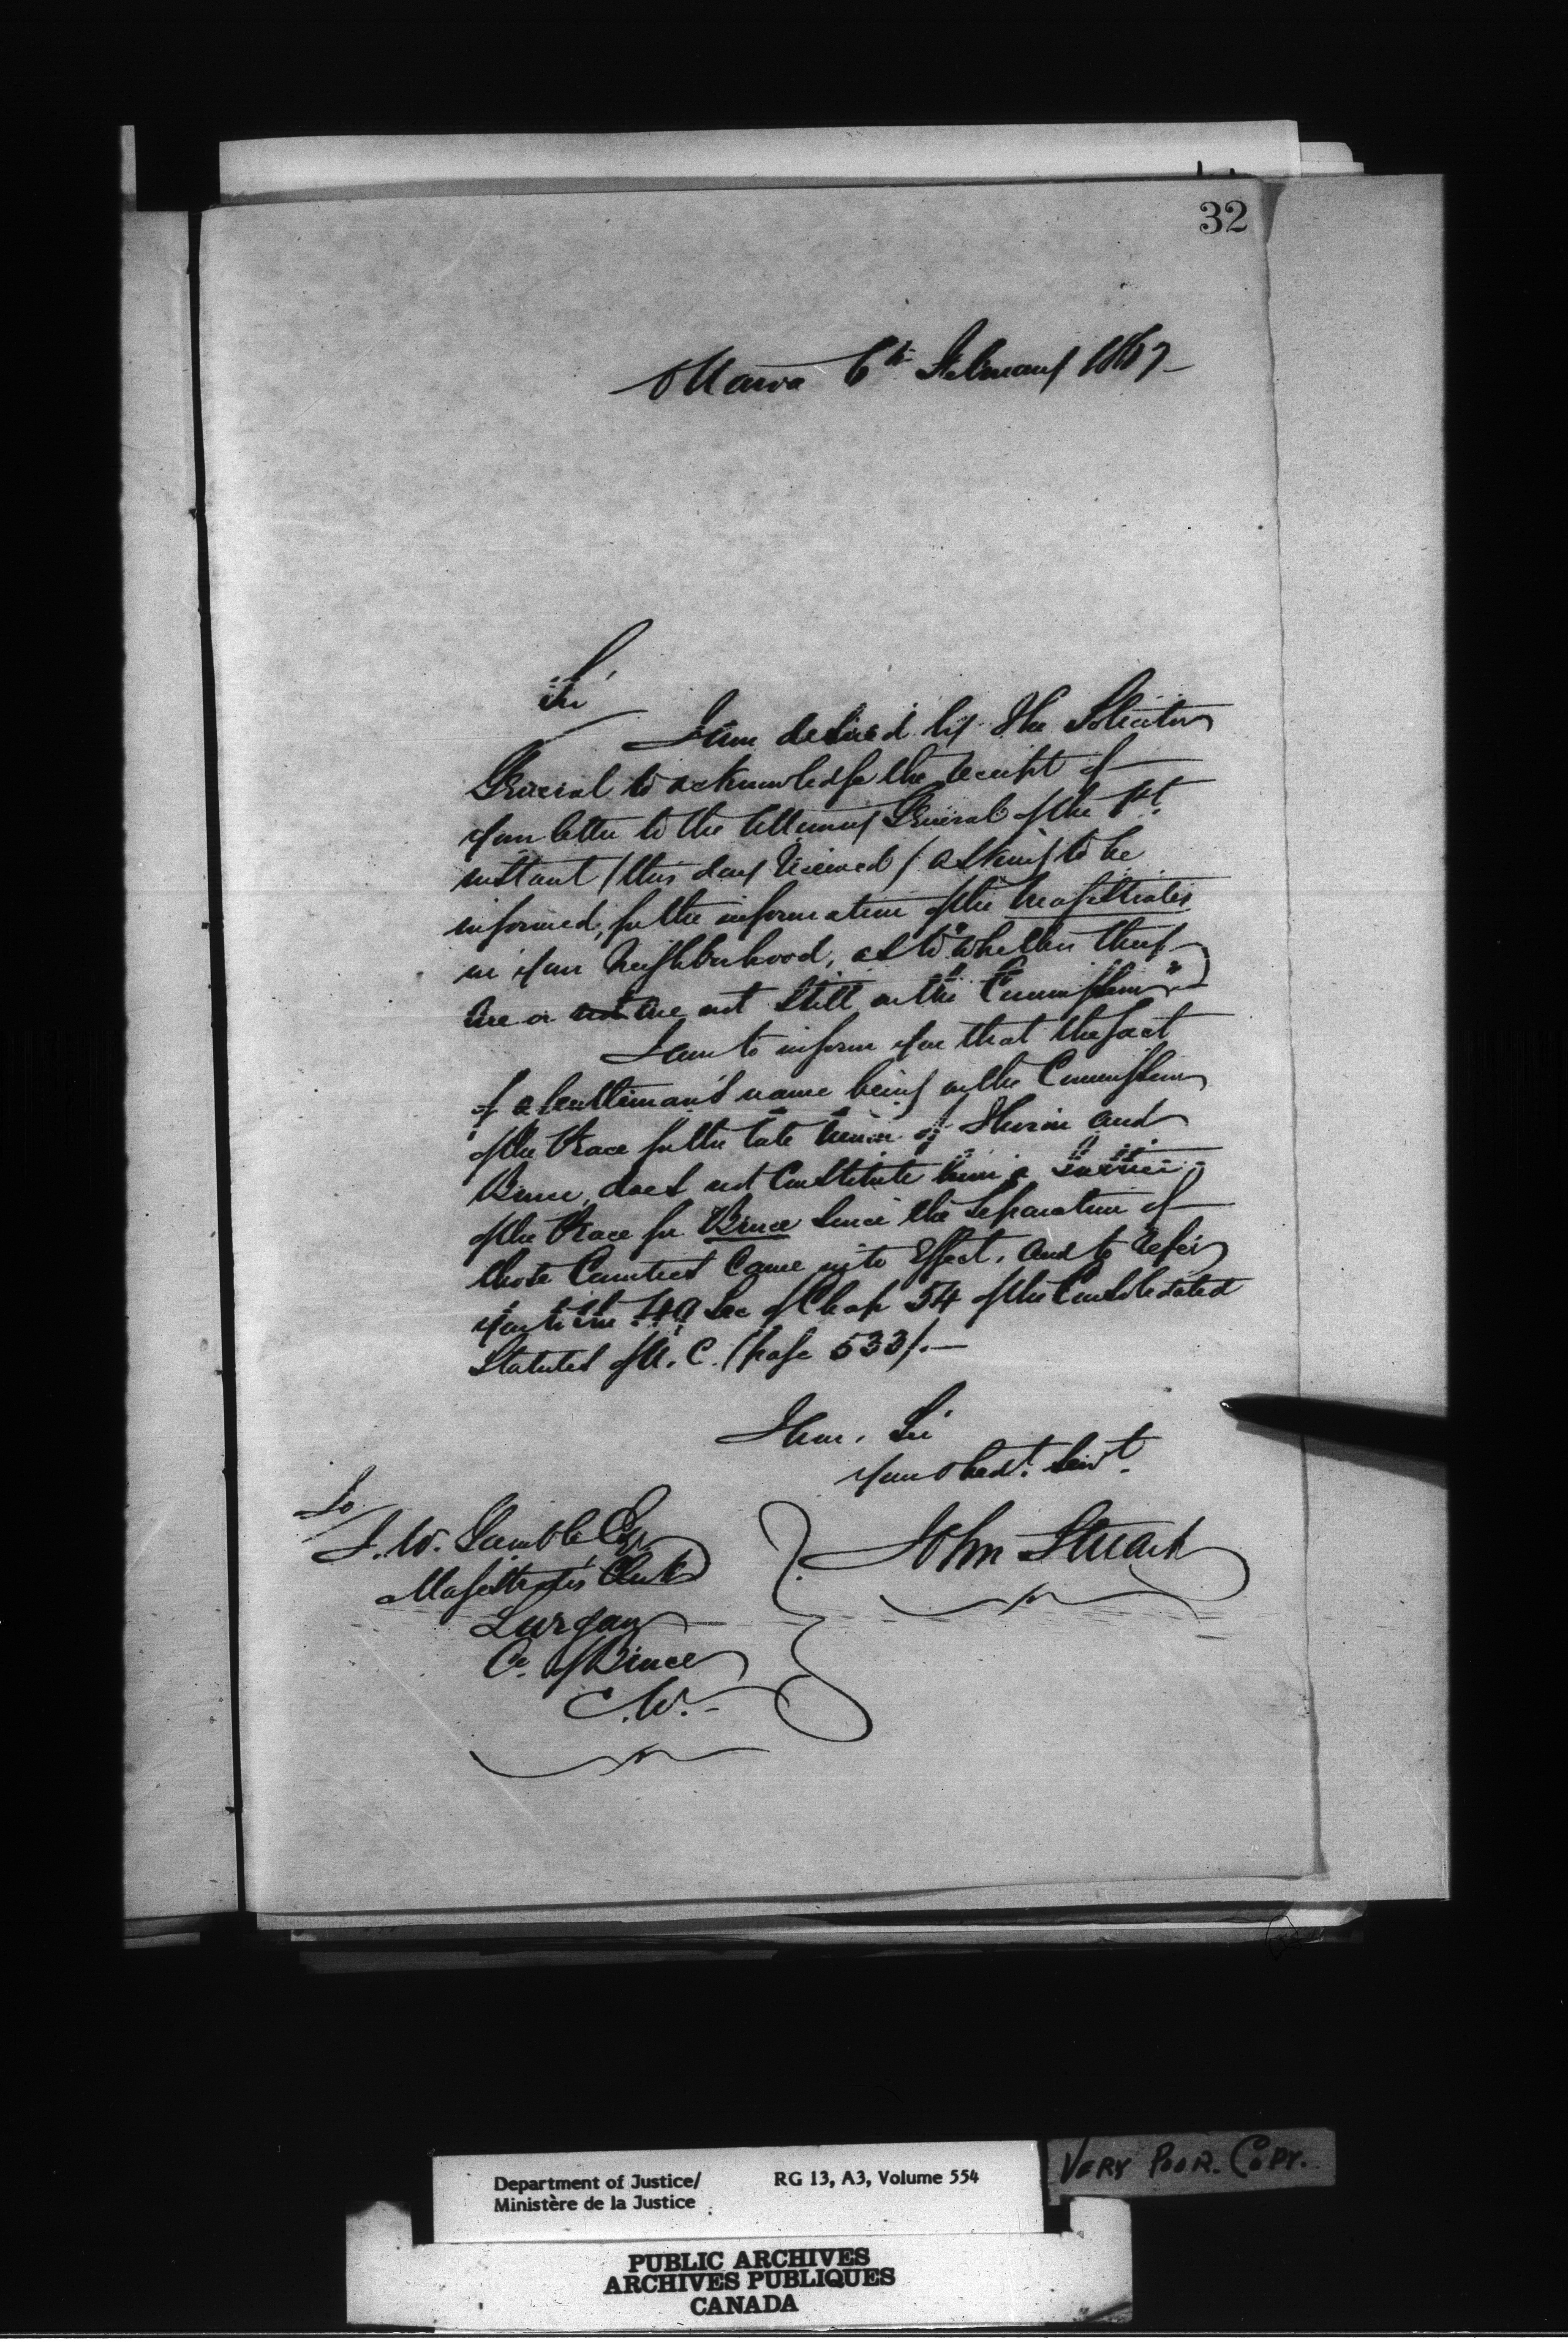 32
Ottawa 6th February 1867
Sir
I am desired by The Solicitor
General to acknowledge the receipt of
your letter to the Attorney General of the 1st
instant (this day received) asking to be
informed, for the information of the Magistrates
in your Neighborhood, as to "whether they
are or not are not still on the Commission"
I am to inform you that the fact
of a Gentleman's name being on the Commission
of the Peace for the late Union of Huron and
Bruce, does not Constitute him a Justice
of the Peace for Bruce since the separation of
those Counties came into Effect, and to refer
you to the 49 Sec of Chap 54 of the Consolidated
Statutes of U. C. (page 533).
I am, Sir
Your obedt. Servt.
John Stuart
To
J. W. Gamble Esq
Magistrates Clerk
Lurgan
Co. of Bruce
C.W.
Department of Justice/
Ministère de la Justice
RG 13, A3, Volume 554
VERY POOR. COPY.
PUBLIC ARCHIVES
ARCHIVES PUBLIQUES
CANADA